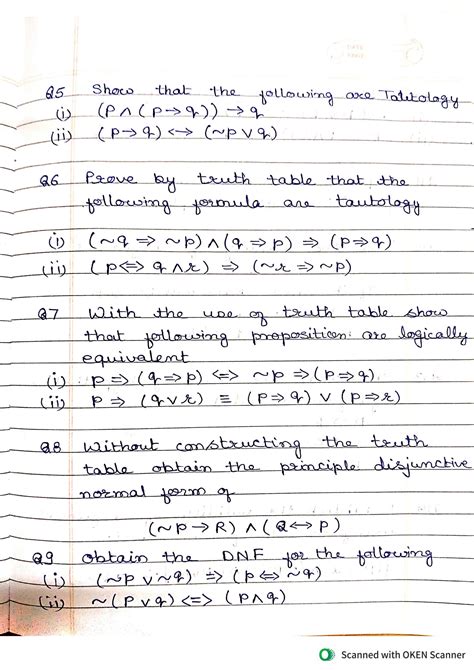 Q5 Show that the following are Tautology
(i) (P ∧ (P → q)) → q
(ii) (P → q) <-> (~p ∨ q)
Q6 Prove by truth table that the
following formula are tautology
(i) (~q ⇒ ~p) ∧ (q ⇒ p) ⇒ (p ⇒ q)
(ii) (p <=> q ∧ r) ⇒ (~r ⇒ ~p)
Q7 With the use of truth table show
that following proposition are logically
equivalent
(i) p ⇒ (q ⇒ p) <=> ~p ⇒ (p ⇒ q)
(ii) p ⇒ (q ∨ r) ≡ (p ⇒ q) ∨ (p ⇒ r)
Q8 Without constructing the truth
table obtain the principle disjunctive
normal form of
(~p → R) ∧ (Q ↔ P)
Q9 obtain the DNF for the following
(i) (~p ∨ ~q) ⇒ (p <=> ~q)
(ii) ~(p ∨ q) <=> (p ∧ q)
Scanned with OKEN Scanner